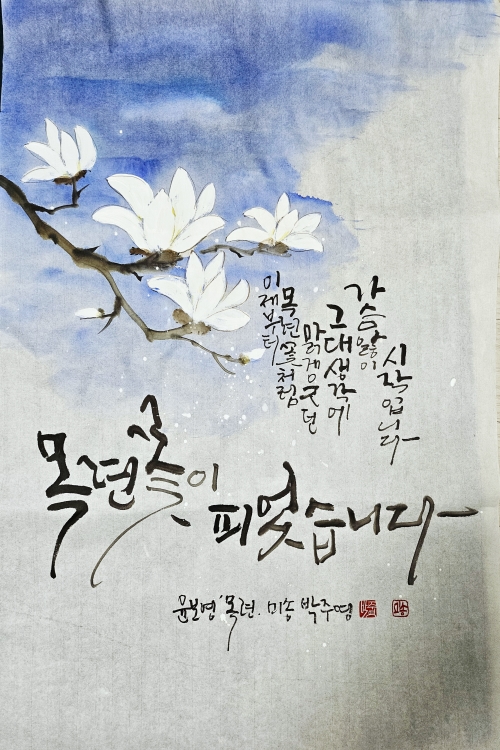 이제부터
목련꽃처럼
맑게 웃던
그대 생각에
가슴앓이
시작입니다
목련꽃이
피었습니다
윤보영 '목련. 미송 박주영